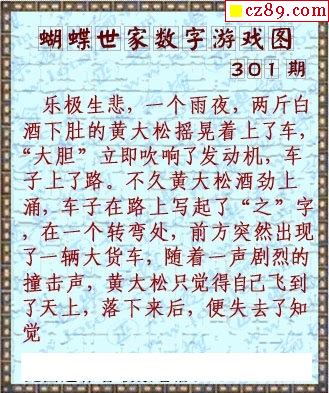 cz89.com
蝴蝶世家数字游戏图
301期
乐极生悲，一个雨夜，两斤白
酒下肚的黄大松摇晃着上了车，
“大胆”立即吹响了发动机，车
子上了路。不久黄大松酒劲上
涌，车子在路上写起了“之”字
，在一个转弯处，前方突然出现
了一辆大货车，随着一声剧烈的
撞击声，黄大松只觉得自己飞到
了天上，落下来后，便失去了知
觉